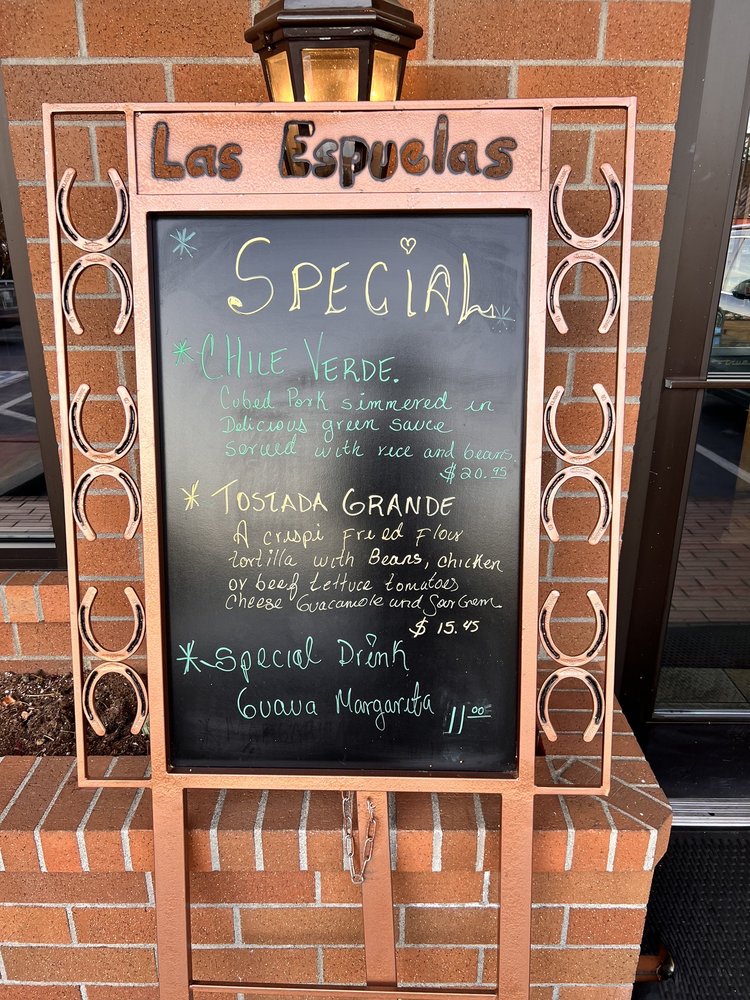 Las Espuelas
SPECIAL
* CHILE VERDE.
Cubed Pork simmered in
Delicious green sauce
served with rice and beans.
$20.95
* TOSTADA GRANDE
A crispi Fried Flour
tortilla with Beans, chicken
or beef Lettuce tomatoes
Cheese Guacamole and Sour Crem
$ 15.45
* Special Drink
Guava Margarita 11.00